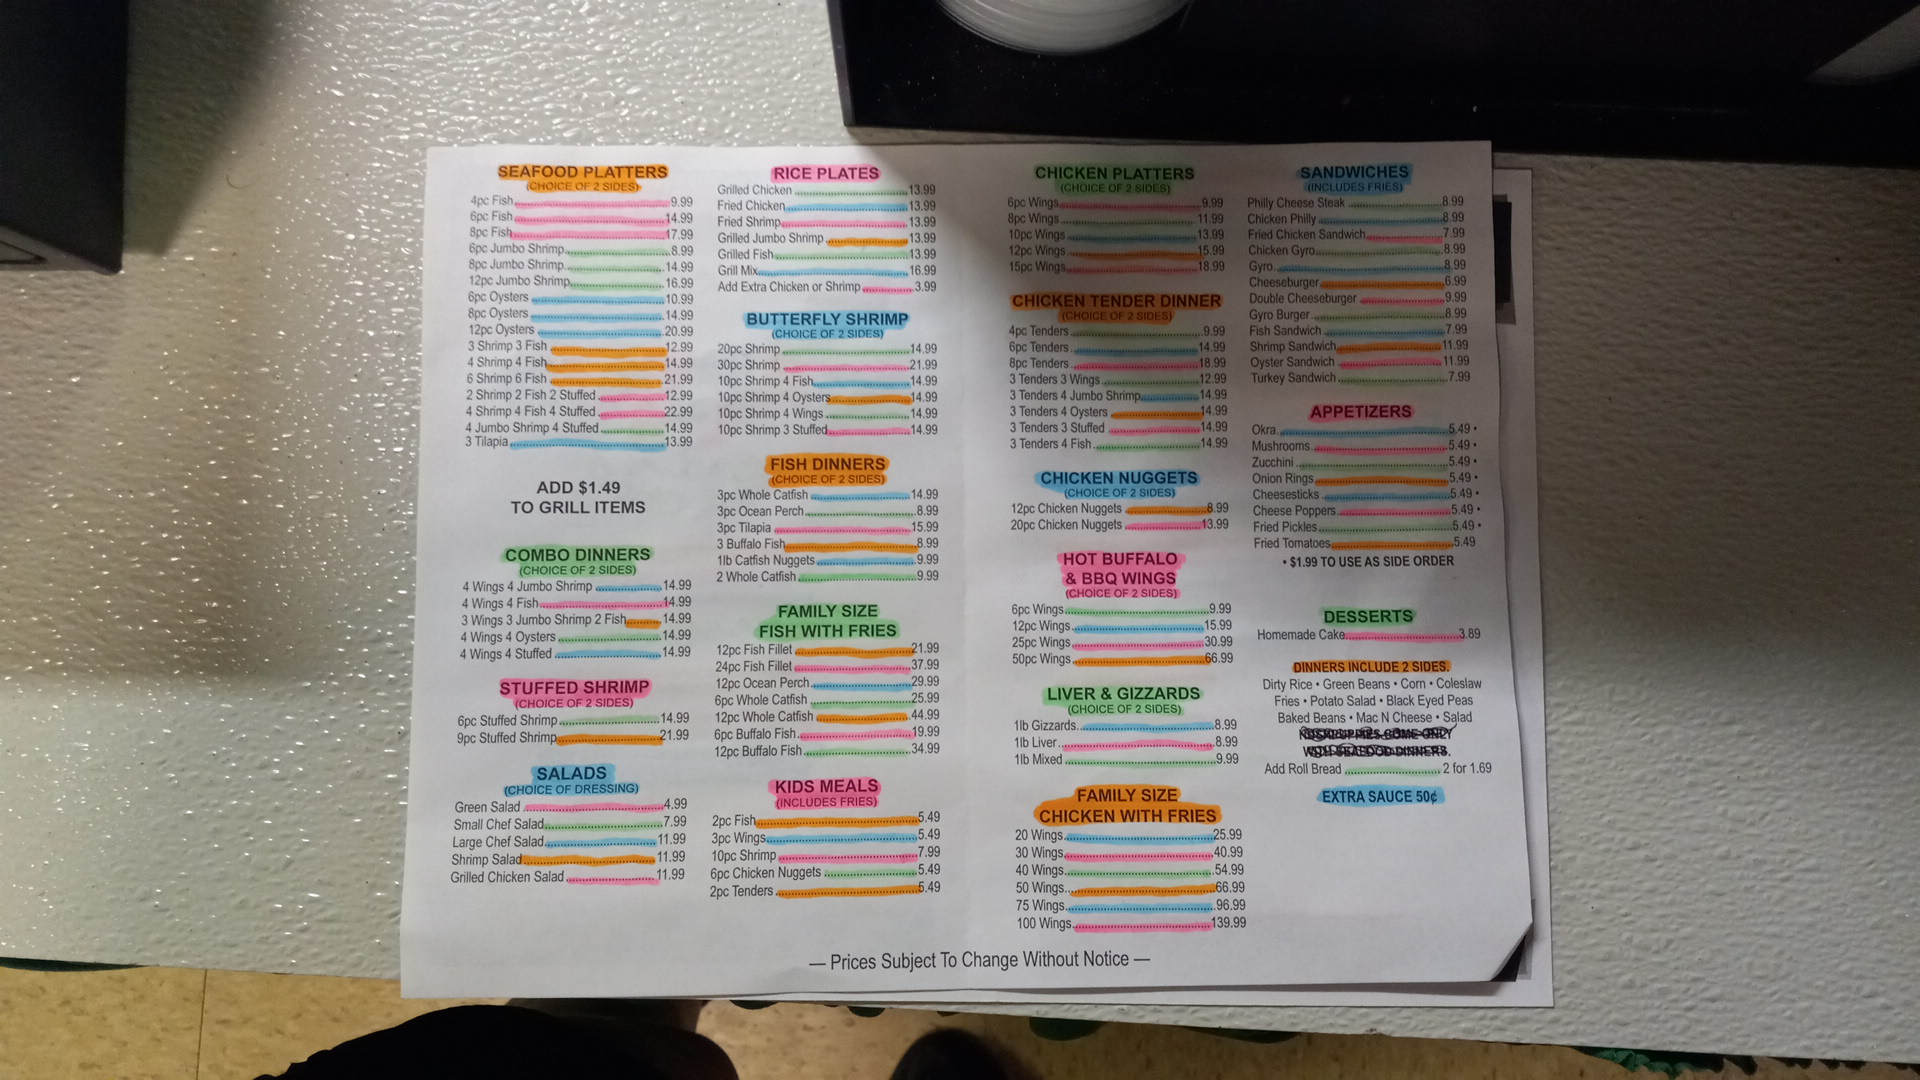 SEAFOOD PLATTERS
(CHOICE OF 2 SIDES)
4pc Fish 9.99
6pc Fish 14.99
8pc Fish 17.99
6pc Jumbo Shrimp 8.99
8pc Jumbo Shrimp 14.99
12pc Jumbo Shrimp 16.99
6pc Oysters 10.99
8pc Oysters 14.99
12pc Oysters 20.99
3 Shrimp 3 Fish 12.99
4 Shrimp 4 Fish 14.99
6 Shrimp 6 Fish 21.99
2 Shrimp 2 Fish 2 Stuffed 12.99
4 Shrimp 4 Fish 4 Stuffed 22.99
4 Jumbo Shrimp 4 Stuffed 14.99
3 Tilapia 13.99
ADD $1.49
TO GRILL ITEMS
COMBO DINNERS
(CHOICE OF 2 SIDES)
4 Wings 4 Jumbo Shrimp 14.99
4 Wings 4 Fish 14.99
3 Wings 3 Jumbo Shrimp 2 Fish 14.99
4 Wings 4 Oysters 14.99
4 Wings 4 Stuffed 14.99
STUFFED SHRIMP
(CHOICE OF 2 SIDES)
6pc Stuffed Shrimp 14.99
9pc Stuffed Shrimp 21.99
SALADS
(CHOICE OF DRESSING)
Green Salad 4.99
Small Chef Salad 7.99
Large Chef Salad 11.99
Shrimp Salad 11.99
Grilled Chicken Salad 11.99
RICE PLATES
Grilled Chicken 13.99
Fried Chicken 13.99
Fried Shrimp 13.99
Grilled Jumbo Shrimp 13.99
Grilled Fish 13.99
Grill Mix 16.99
Add Extra Chicken or Shrimp 3.99
BUTTERFLY SHRIMP
(CHOICE OF 2 SIDES)
20pc Shrimp 14.99
30pc Shrimp 21.99
10pc Shrimp 4 Fish 14.99
10pc Shrimp 4 Oysters 14.99
10pc Shrimp 4 Wings 14.99
10pc Shrimp 3 Stuffed 14.99
FISH DINNERS
(CHOICE OF 2 SIDES)
3pc Whole Catfish 14.99
3pc Ocean Perch 8.99
3pc Tilapia 15.99
3 Buffalo Fish 8.99
1lb Catfish Nuggets 9.99
2 Whole Catfish 9.99
FAMILY SIZE
FISH WITH FRIES
12pc Fish Fillet 21.99
24pc Fish Fillet 37.99
12pc Ocean Perch 29.99
6pc Whole Catfish 25.99
12pc Whole Catfish 44.99
6pc Buffalo Fish 19.99
12pc Buffalo Fish 34.99
KIDS MEALS
(INCLUDES FRIES)
2pc Fish 5.49
3pc Wings 5.49
10pc Shrimp 7.99
6pc Chicken Nuggets 5.49
2pc Tenders 5.49
CHICKEN PLATTERS
(CHOICE OF 2 SIDES)
6pc Wings 9.99
8pc Wings 11.99
10pc Wings 13.99
12pc Wings 15.99
15pc Wings 18.99
CHICKEN TENDER DINNER
(CHOICE OF 2 SIDES)
4pc Tenders 9.99
6pc Tenders 14.99
8pc Tenders 18.99
3 Tenders 3 Wings 12.99
3 Tenders 4 Jumbo Shrimp 14.99
3 Tenders 4 Oysters 14.99
3 Tenders 3 Stuffed 14.99
3 Tenders 4 Fish 14.99
CHICKEN NUGGETS
(CHOICE OF 2 SIDES)
12pc Chicken Nuggets 8.99
20pc Chicken Nuggets 13.99
HOT BUFFALO
& BBQ WINGS
(CHOICE OF 2 SIDES)
6pc Wings 9.99
12pc Wings 15.99
25pc Wings 30.99
50pc Wings 66.99
LIVER & GIZZARDS
(CHOICE OF 2 SIDES)
1lb Gizzards 8.99
1lb Liver 8.99
1lb Mixed 9.99
FAMILY SIZE
CHICKEN WITH FRIES
20 Wings 25.99
30 Wings 40.99
40 Wings 54.99
50 Wings 66.99
75 Wings 96.99
100 Wings 139.99
SANDWICHES
(INCLUDES FRIES)
Philly Cheese Steak 8.99
Chicken Philly 8.99
Fried Chicken Sandwich 7.99
Chicken Gyro 8.99
Gyro 8.99
Cheeseburger 6.99
Double Cheeseburger 9.99
Gyro Burger 8.99
Fish Sandwich 7.99
Shrimp Sandwich 11.99
Oyster Sandwich 11.99
Turkey Sandwich 7.99
APPETIZERS
Okra 5.49 •
Mushrooms 5.49 •
Zucchini 5.49 •
Onion Rings 5.49 •
Cheesesticks 5.49 •
Cheese Poppers 5.49 •
Fried Pickles 5.49 •
Fried Tomatoes 5.49
• $1.99 TO USE AS SIDE ORDER
DESSERTS
Homemade Cake 3.89
DINNERS INCLUDE 2 SIDES.
Dirty Rice • Green Beans • Corn • Coleslaw
Fries • Potato Salad • Black Eyed Peas
Baked Beans • Mac N Cheese • Salad
HUSHPUPPIES COME ONLY
WITH SEAFOOD DINNERS.
Add Roll Bread 2 for 1.69
EXTRA SAUCE 50¢
— Prices Subject To Change Without Notice —